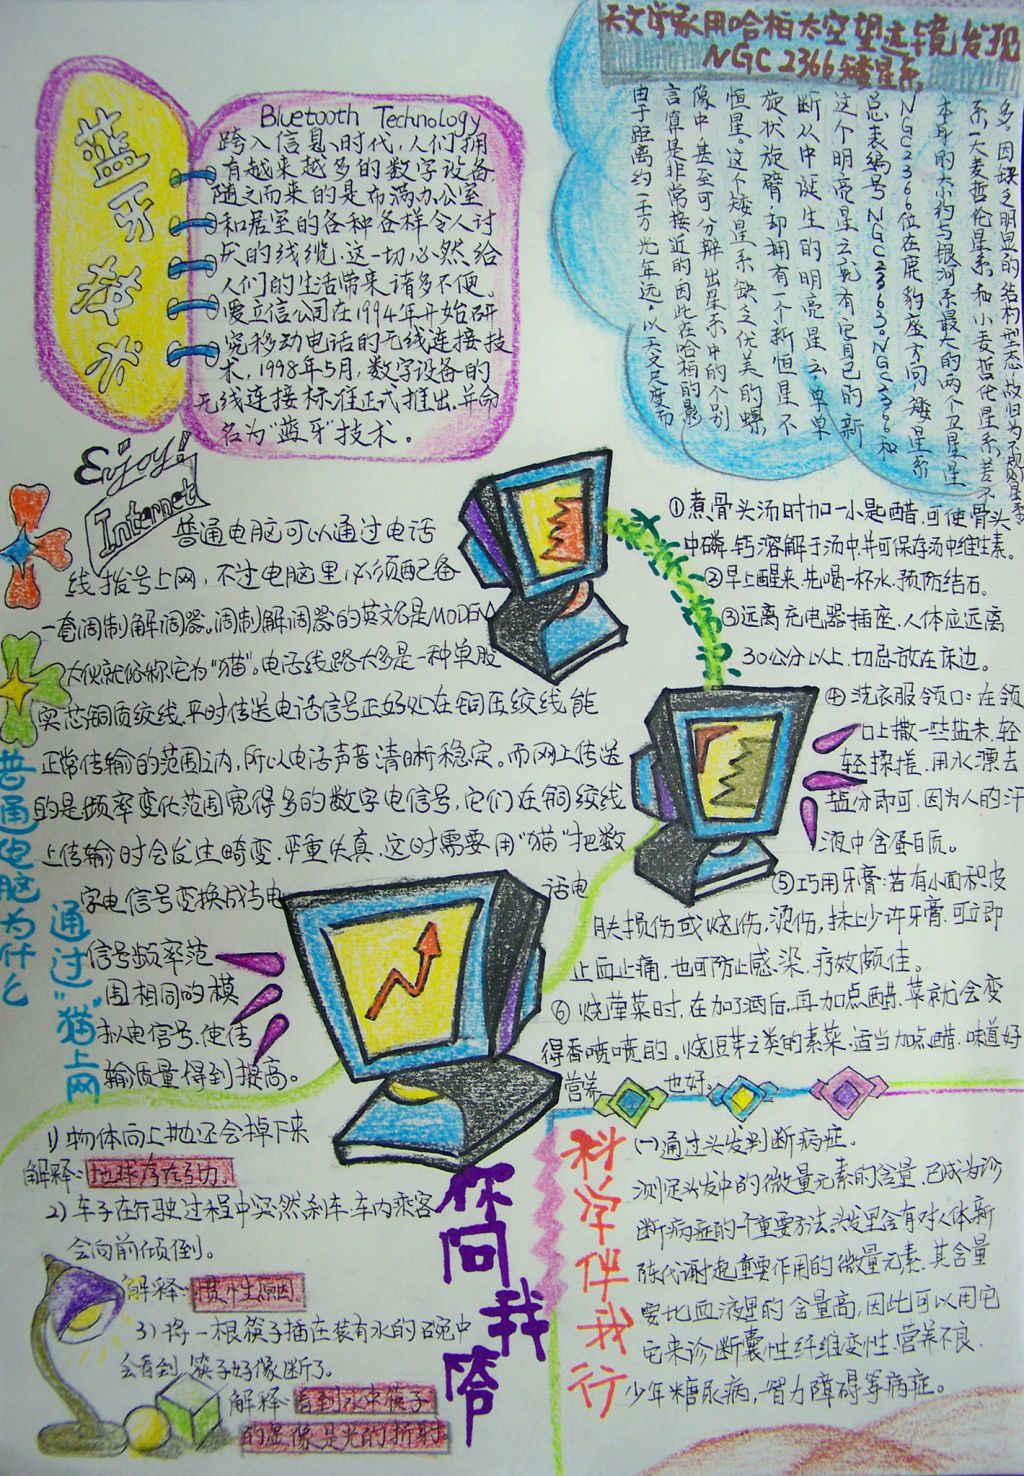 蓝牙技术
Bluetooth Technology
跨入信息时代，人们拥
有越来越多的数字设备，
随之而来的是布满办公室
和居室的各种各样令人讨
厌的线缆。这一切必然给
人们的生活带来诸多不便。
爱立信公司在1994年开始研
究移动电话的无线连接技
术，1998年5月，数字设备的
无线连接标准正式推出，并命
名为“蓝牙”技术。
天文学家用哈柏太空望远镜发现
NGC2366矮星系
多。因缺乏明显的结构型态，故归为不规则星系
系—大麦哲伦星系和小麦哲伦星系差不
本身的大小约与银河系最大的两个卫星星
NGC2366位在鹿豹座方向，矮星系
总表编号NGC2363。NGC2366和
这个明亮星云就有它自己的新
断从中诞生的明亮星云，单单
旋状旋臂却拥有一个新恒星不
恒星。这个矮星系缺乏优美的螺
像中甚至可分辨出星系中的个别
言算是非常接近的，因此在哈柏的影
由于距离约一千万光年远，以天文尺度而
Enjoy!
Internet
普通电脑为什么
通过“猫”上网
普通电脑可以通过电话
线拨号上网，不过电脑里必须配备
一套调制解调器。调制解调器的英文名是MODEM
大伙就俗称它为“猫”。电话线路大多是一种单股
实芯铜质绞线，平时传送电话信号正好处在铜压绞线能
正常传输的范围之内，所以电话声音清晰稳定。而网上传送
的是频率变化范围宽得多的数字电信号，它们在铜绞线
上传输时会发生畸变，严重失真，这时需要用“猫”把数
字电信号变换成与电话电
信号频率范
围相同的模
拟电信号，使传
输质量得到提高。
①煮骨头汤时加一小匙醋，可使骨头
中磷、钙溶解于汤中，并可保存汤中维生素。
②早上醒来，先喝一杯水，预防结石。
③远离充电器插座，人体应远离
30公分以上，切忌放在床边。
④洗衣服领口：在领
口上撒一些盐末，轻
轻揉搓，用水漂去
盐分即可，因为人的汗
液中含蛋白质。
⑤巧用牙膏：若有小面积皮
肤损伤或烧伤，烫伤，抹上少许牙膏，可立即
止血止痛，也可防止感染，疗效颇佳。
⑥烧荤菜时，在加了酒后，再加点醋，菜就会变
得香喷喷的。烧豆芽之类的素菜，适当加点醋，味道好
营养也好。
你问我答
1)物体向上抛还会掉下来
解释：地球存在引力。
2)车子在行驶过程中突然刹车，车内乘客
会向前倾倒。
解释：惯性原因。
3)将一根筷子插在装有水的碗中
会看到筷子好像断了。
解释：看到水中筷子
的虚像是光的折射
科学伴我行
(一)通过头发判断病症。
测定头发中的微量元素的含量，已成为诊
断病症的一个重要方法。头发里含有对人体新
陈代谢起重要作用的微量元素，其含量
要比血液里的含量高，因此可以用它
它来诊断囊性纤维变性、营养不良、
少年糖尿病、智力障碍等病症。